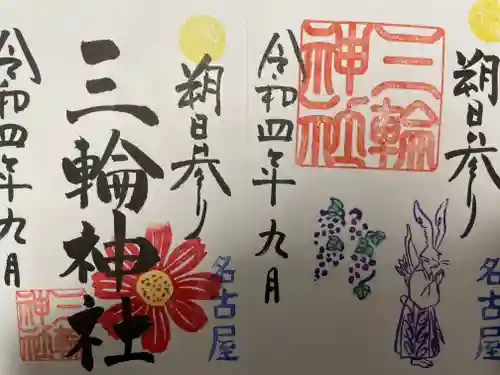 朔日参り
名古屋
三輪神社
令和四年九月
三輪神社
朔日参り
名古屋
三輪神社
令和四年九月